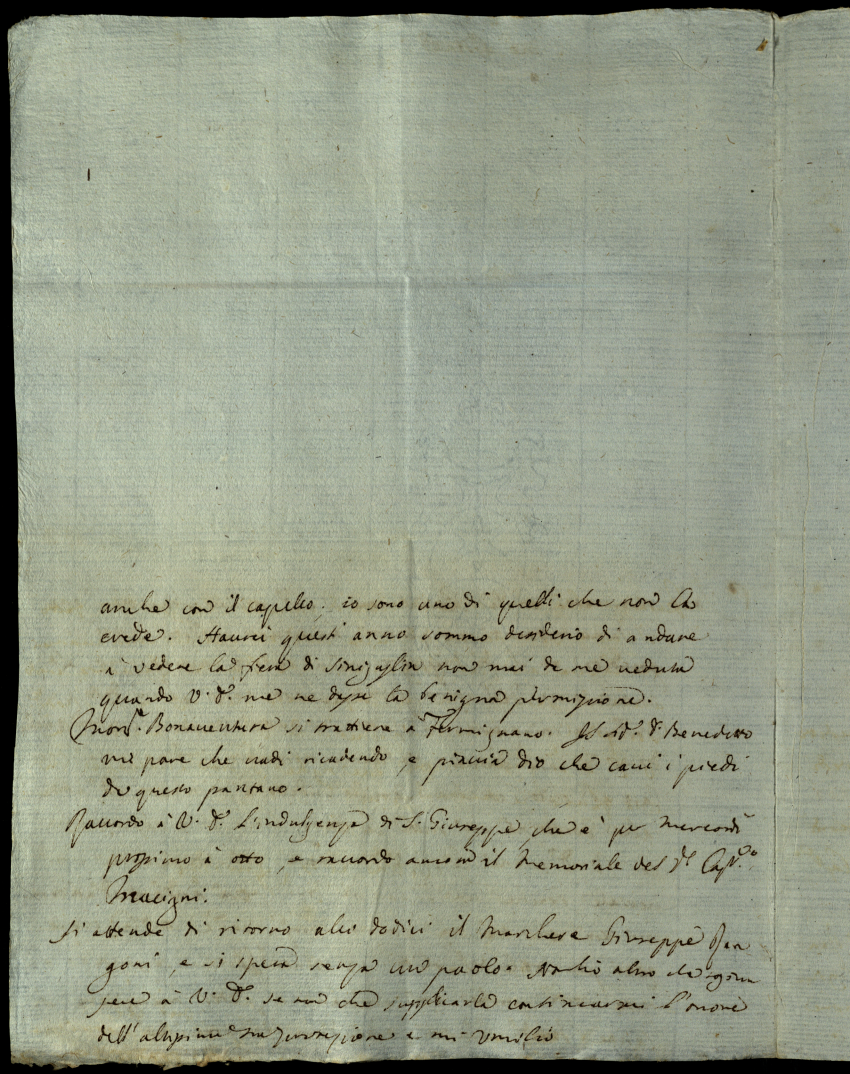 anche con il capello. io sono uno di quelli che non la
crede. Haurei quest'anno sommo desiderio di andare
à vedere la fiera di Sinigaglia non mai da me veduta
quando V. E. me ne desse la benigna permissione.
Bonaventura si trattiene à Fermignano. Il Benedetto
mi pare che vadi ricadendo, e piaccia dio che cavi i piedi
da questo pantano.
Raccordo à V. E. l'indulgenza di S. Giuseppe che è per Mercordì
prossimo à otto, e raccordo ancora il Memoriale del
Si attende di ritorno alli dodici il Marchese Giuseppe Ban
goni, e si spera senza un paolo. Non hò altro da
à V. E. se non che supplicarla continuarmi l'onore
dell'altissima sua protezione e mi umilio